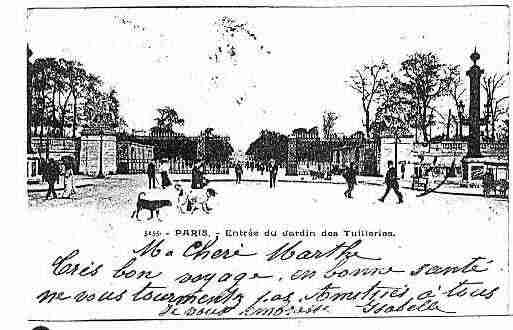 5155. - PARIS. - Entrée du Jardin des Tuileries.
Ma Chère Marthe
Très bon voyage, en bonne santé
ne vous tourmentez pas Amitiés à tous
Je vous embrasse Isabelle